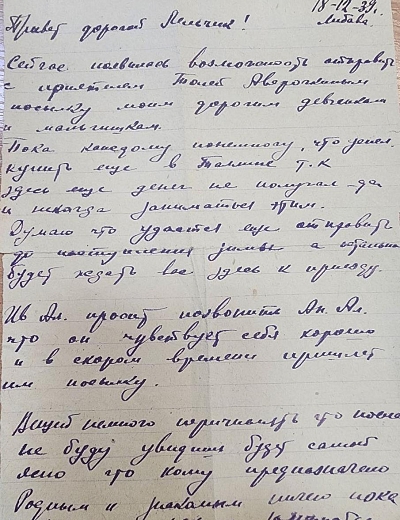 18-12-39г.
Либава.
Привет дорогой Лельчик!
Сейчас появилась возможность отправить
с приятелем Толей Аверочкиным
посылку моим дорогим девченкам
и мальчишкам.
Пока каждому понемногу, что успел
купить еще в Таллине т.к
здесь еще денег не получал да
и некогда заниматься этим.
Думаю что удастся еще отправить
до наступления зимы а остальное
будет ждать вас здесь к приезду.
Ив Ал. просит позвонить Ан. Ал.
что он чувствует себя хорошо
и в скором времени пришлет
им посылку.
Вещей немного перечислять что
не буду увидишь будет самой
ясно что кому предназначено
Родным и знакомым ничего пока